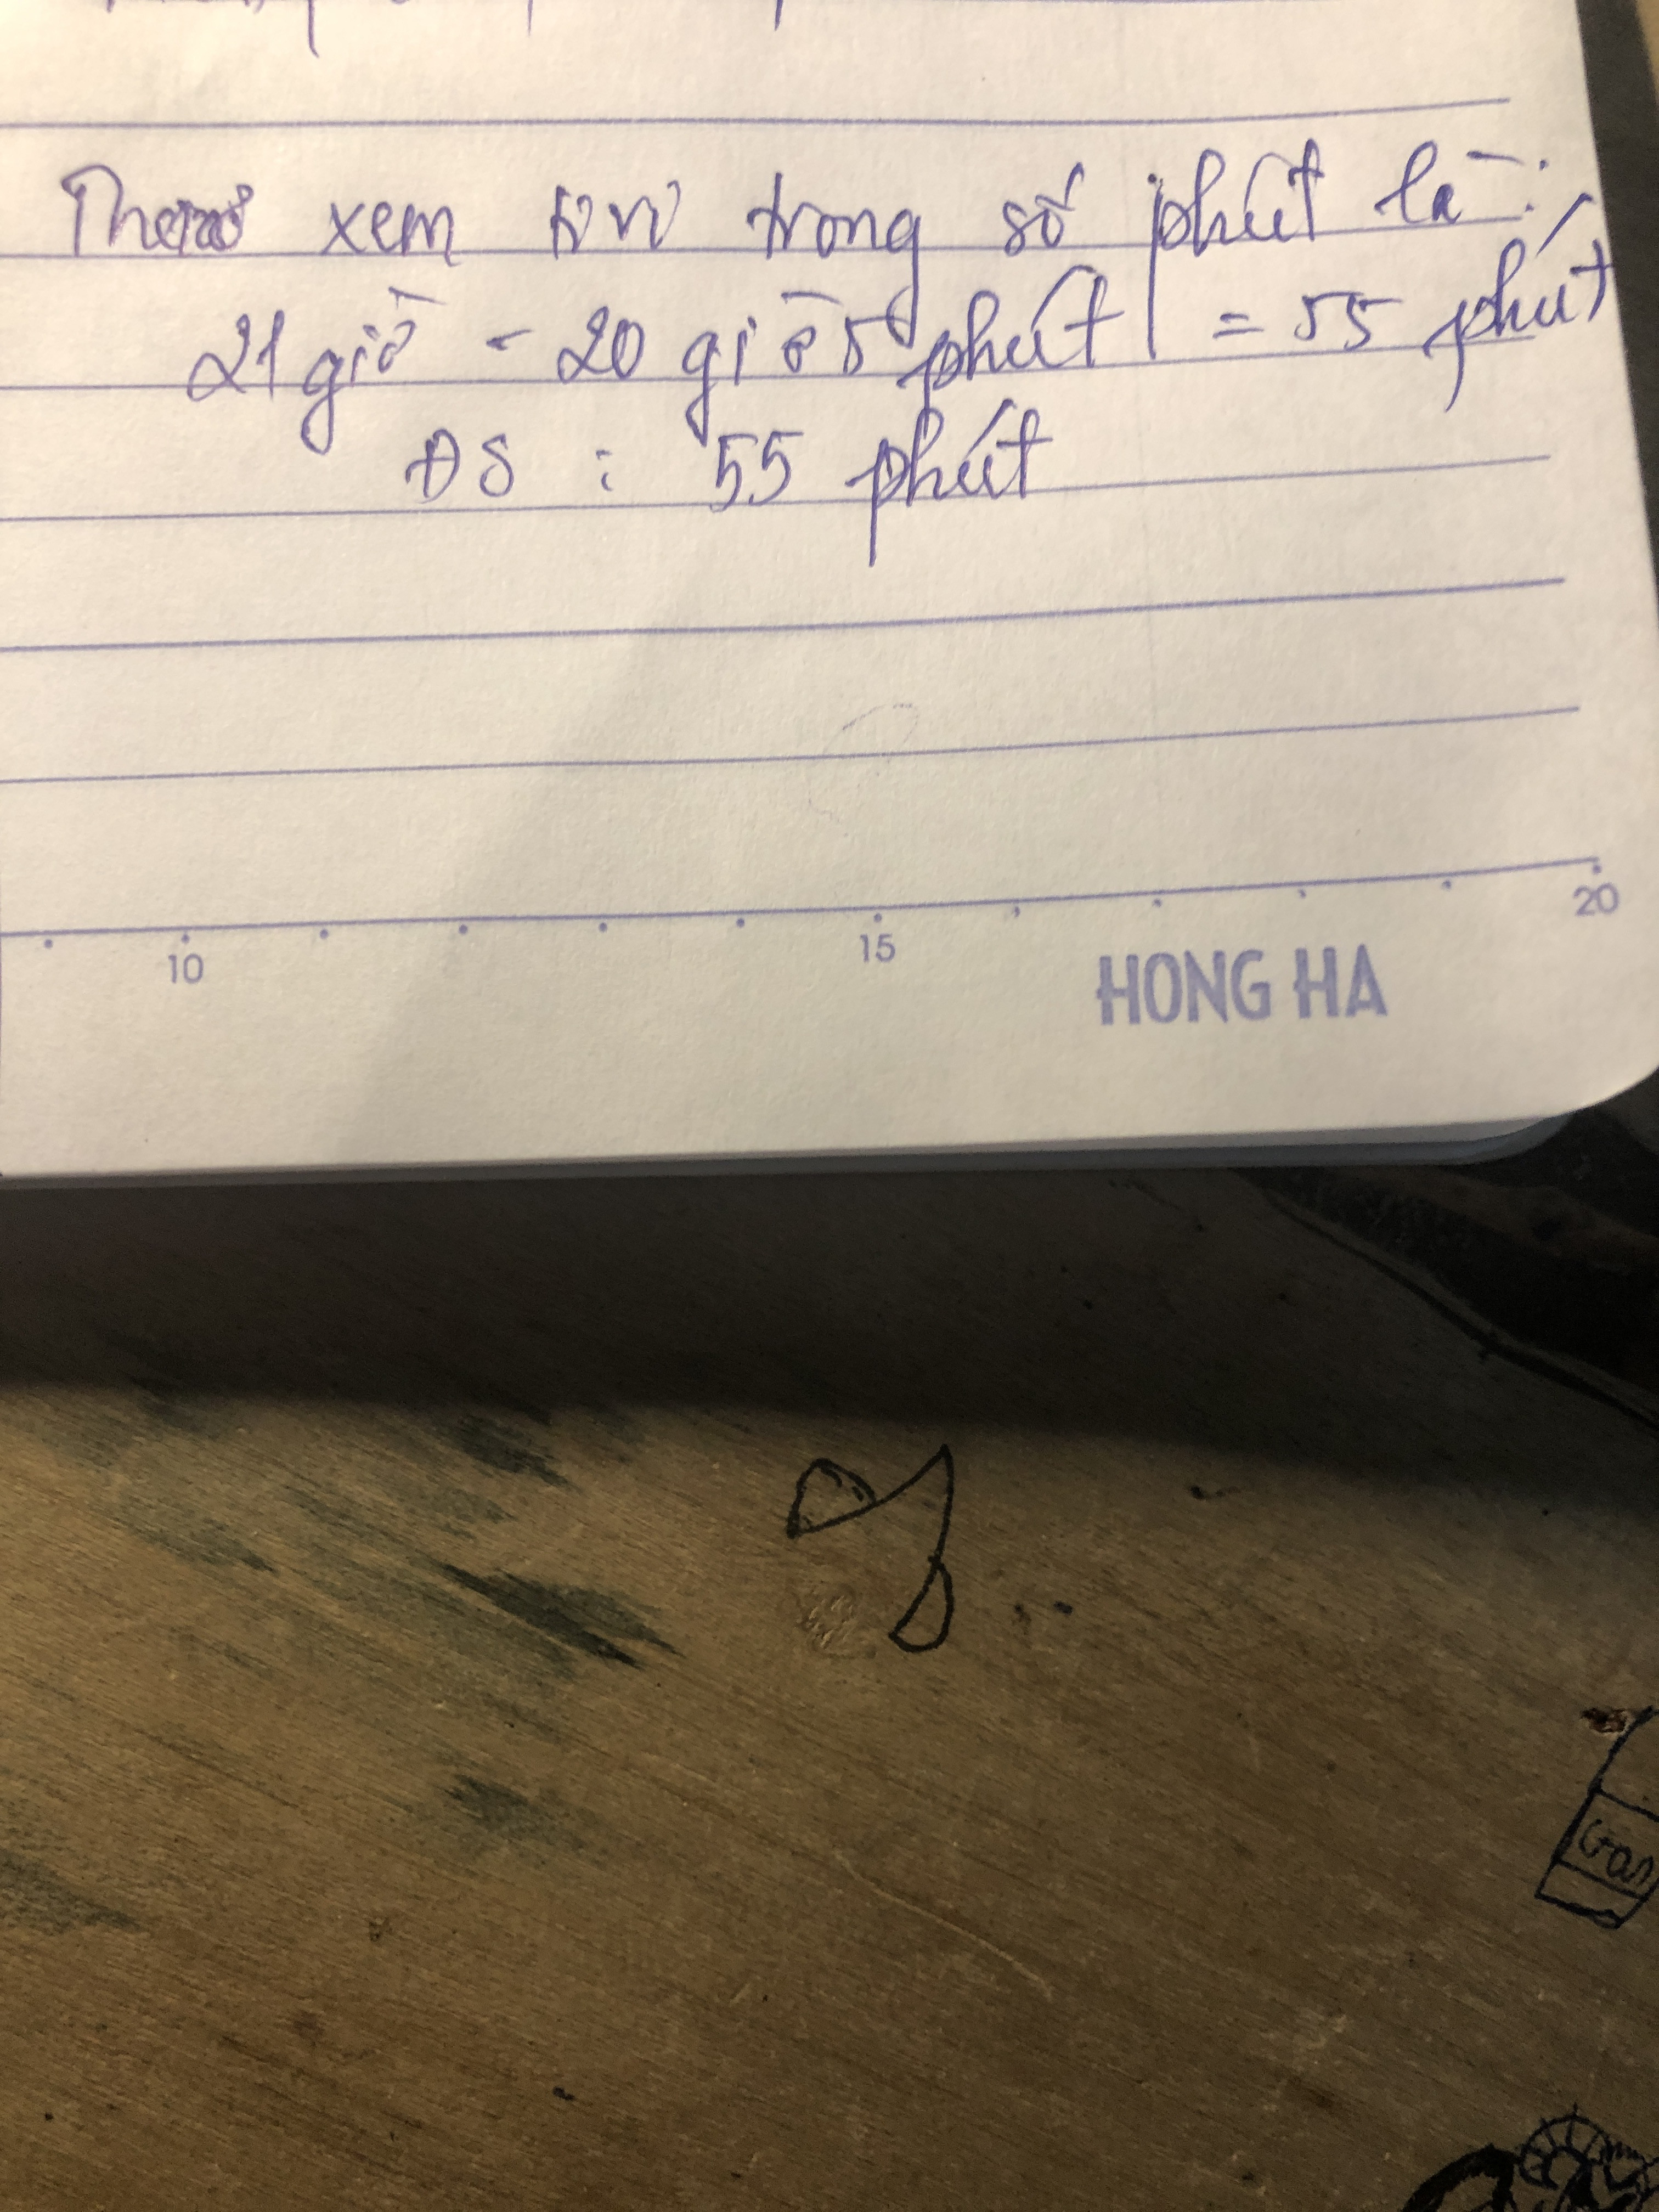 xem ti vi trong số phút là:
21 giờ - 20 giờ 5 phút = 55 phút
ĐS : 55 phút
10 15 20
HONG HA
Gas